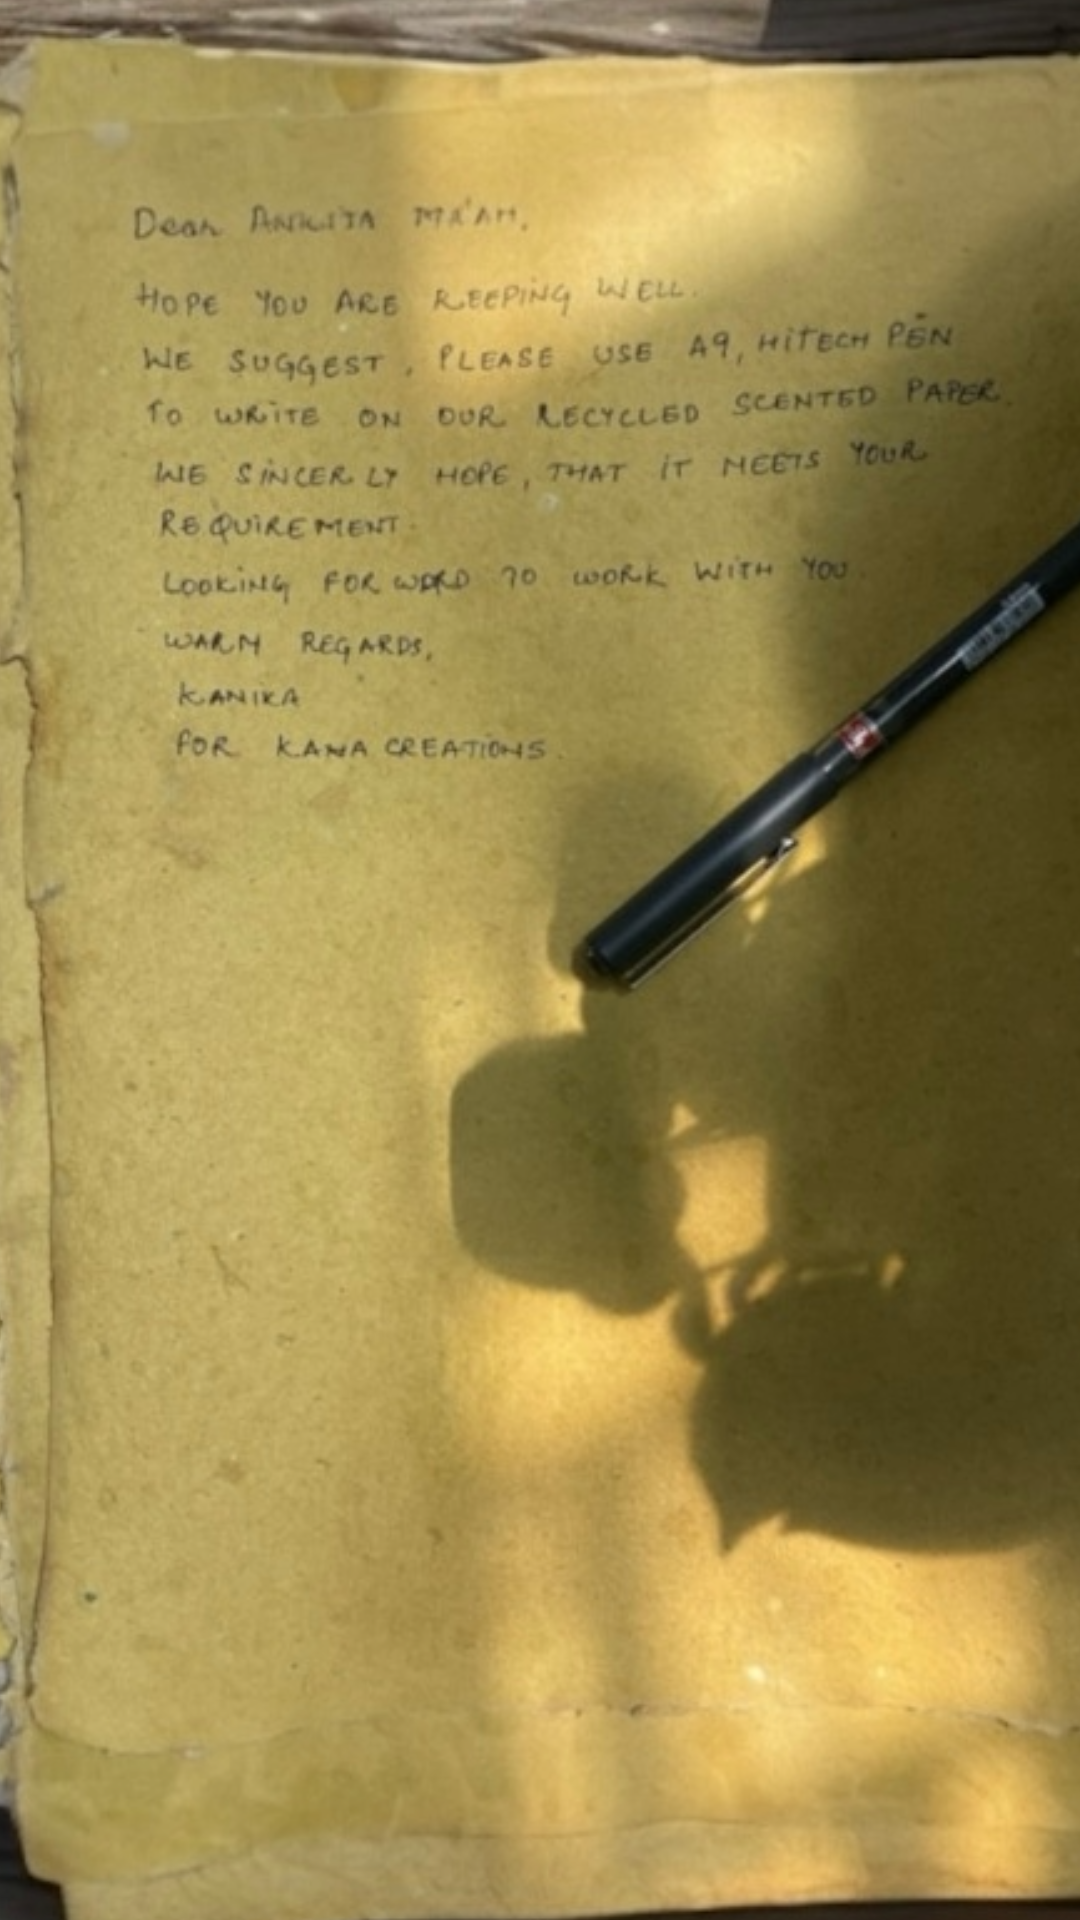 Dear ANKITA MA'AM,
HOPE YOU ARE KEEPING WELL.
WE SUGGEST, PLEASE USE A9, HITECH PEN
TO WRITE ON OUR RECYCLED SCENTED PAPER.
WE SINCERLY HOPE, THAT IT MEETS YOUR
REQUIREMENT.
LOOKING FORWORD TO WORK WITH YOU.
WARM REGARDS,
KANIKA
FOR KANA CREATIONS.